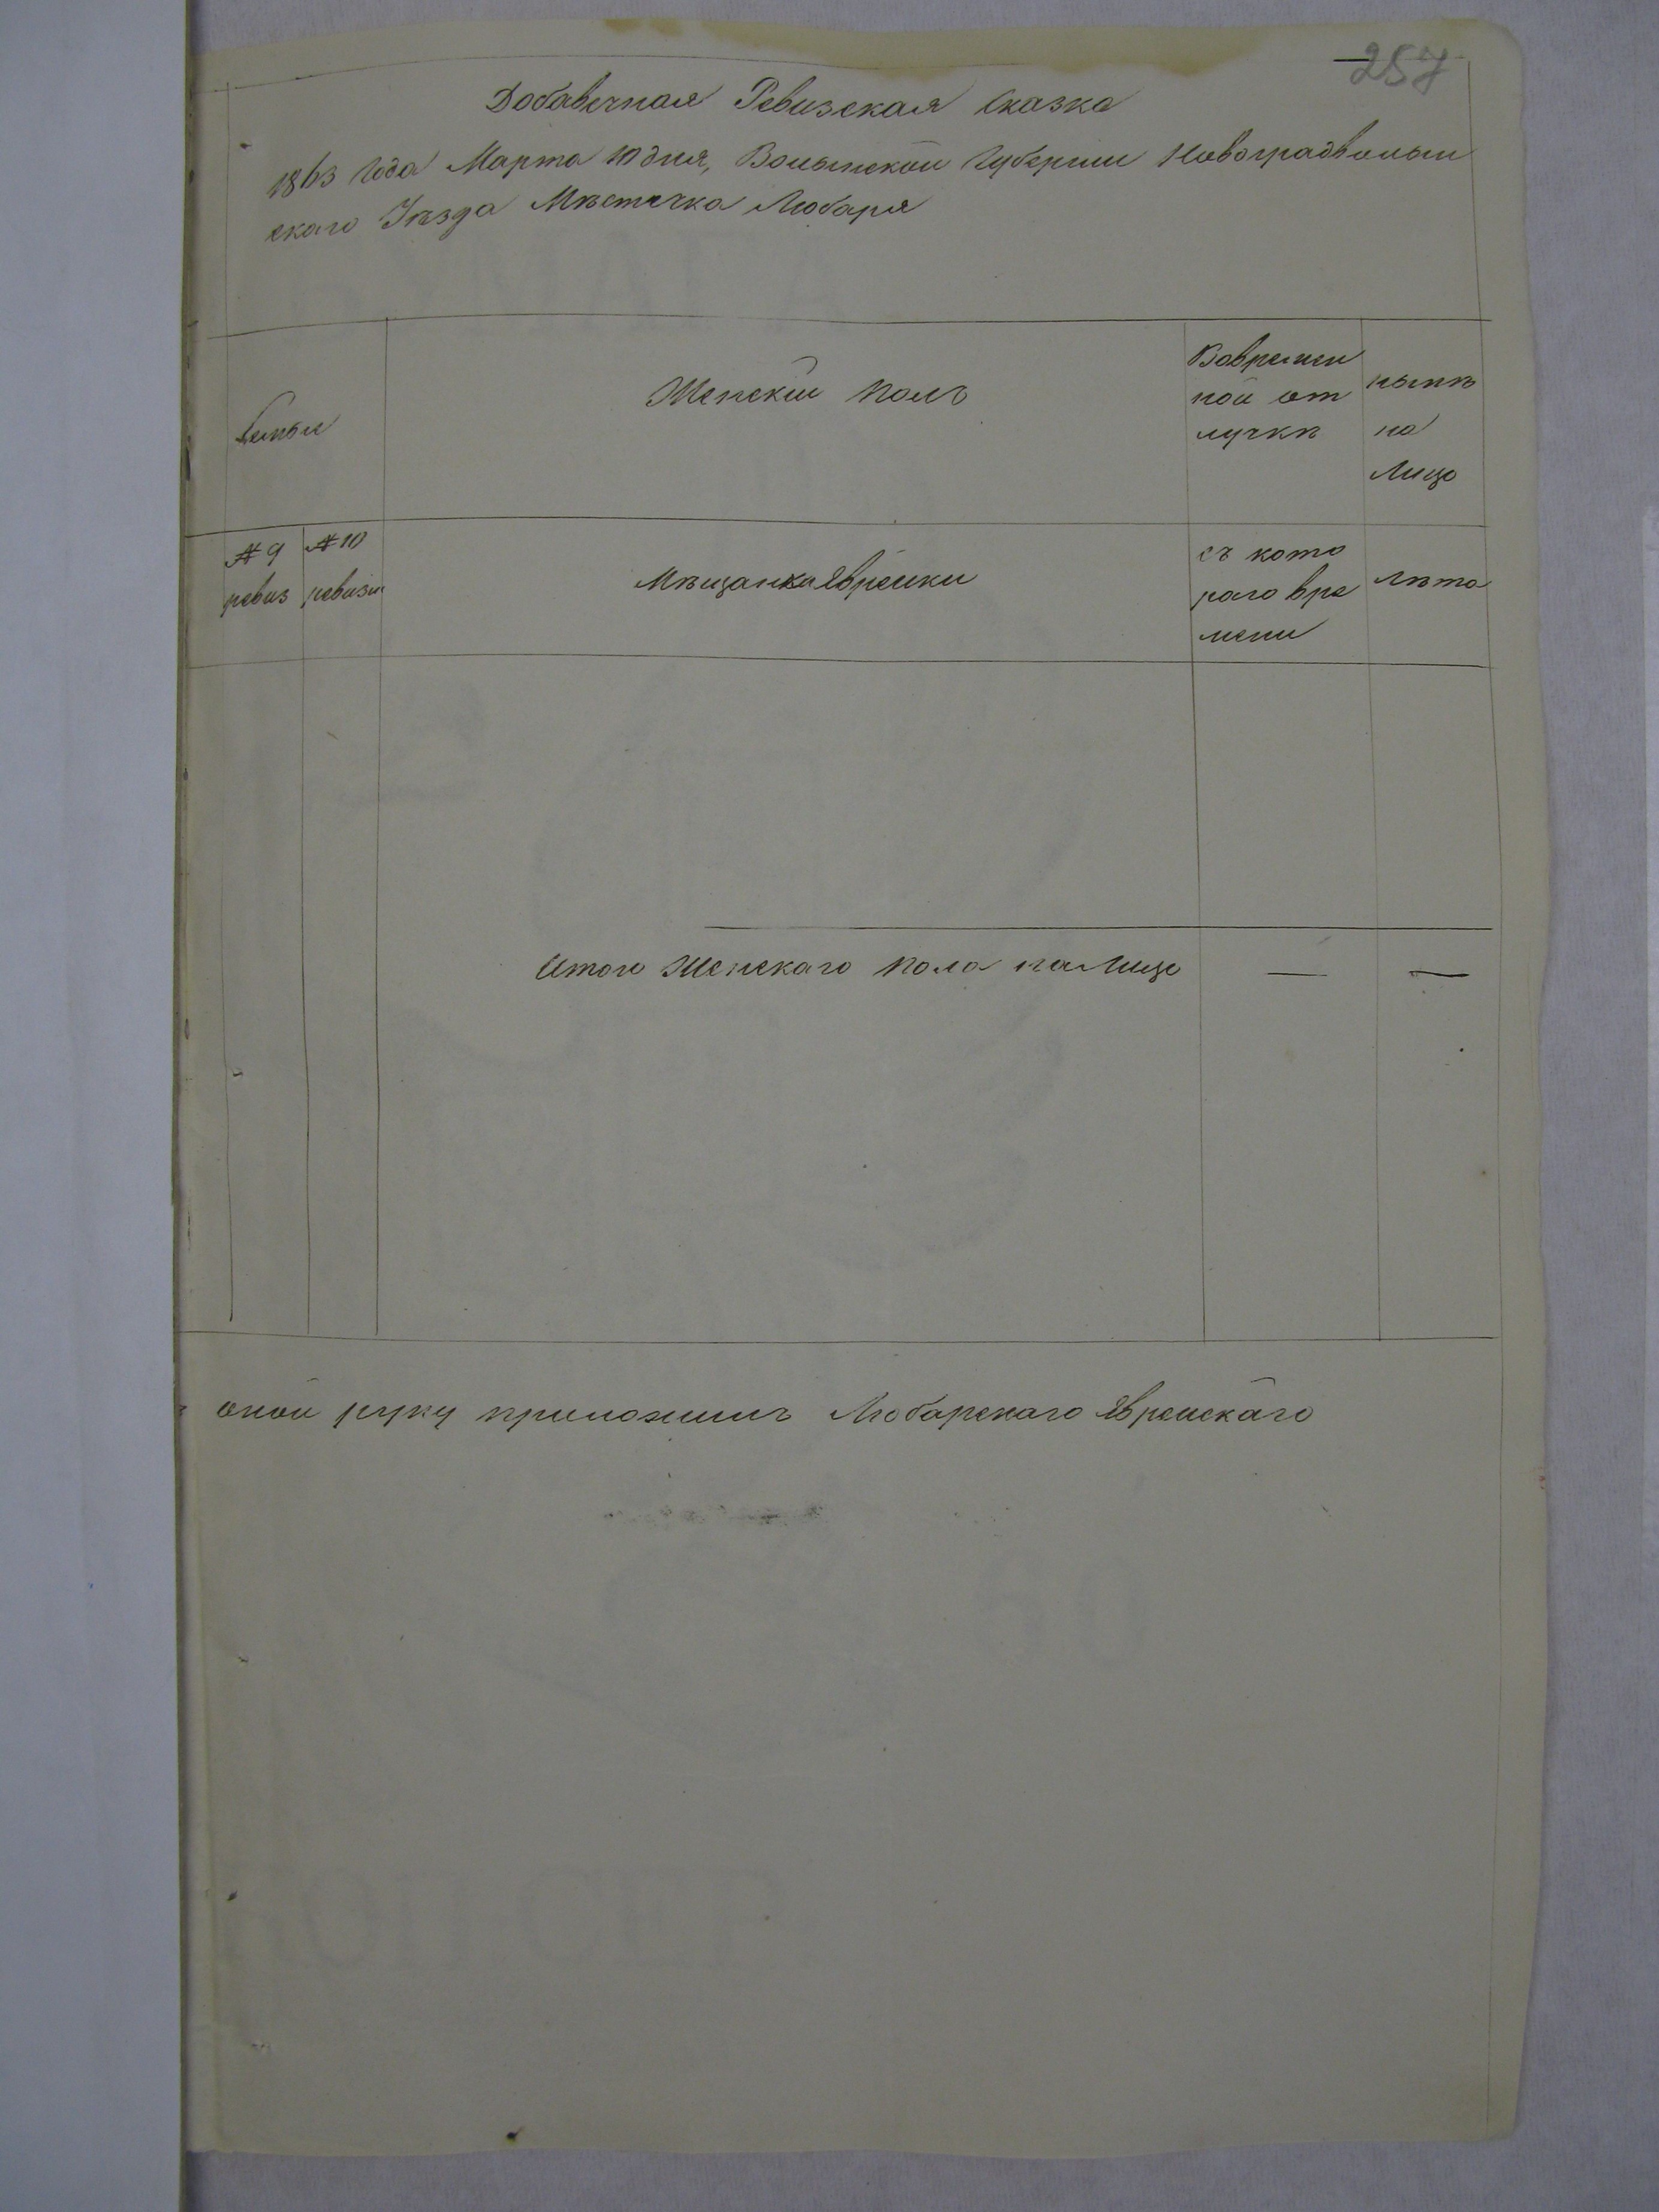 257
Добавечная Ревизская Сказка
1863 Года Марта 10 дня, Волынской Губернии Новоградволын
скаго Уѣзда Мѣстечка Любаря
Семьи
Женскiй полъ
Вовремен
ной от
лучкѣ
нынѣ
на
Лицо
№ 9
ревиз
№ 10
ревизи
Мѣщанки Еврейки
съ кото
раго вре
мени
Лѣта
Итого Женскаго пола на Лицо — —
оной руку приложилъ Любарскаго Еврейскаго